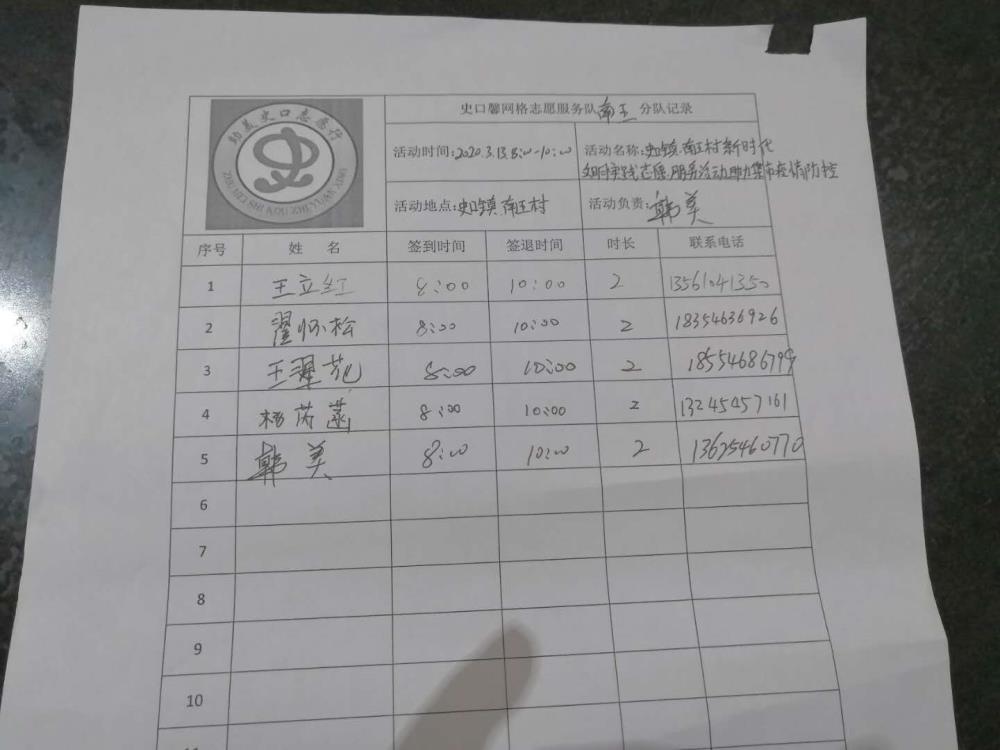 勤美史口志愿行
QIN MEI SHI KOU ZHI YUAN XING
史口馨网格志愿服务队南王分队记录
活动时间:2020.3.13.8:00-10:00
活动名称:史口镇南王村新时代
文明实践志愿服务活动助力集市疫情防控
活动地点:史口镇南王村
活动负责:韩美
序号 姓名 签到时间 签退时间 时长 联系电话
1 王立红 8:00 10:00 2 13561041350
2 翟怀松 8:00 10:00 2 18354636926
3 王翠花 8:00 10:00 2 18554686799
4 杨芮菡 8:00 10:00 2 13245457161
5 韩美 8:00 10:00 2 13625460770
6
7
8
9
10